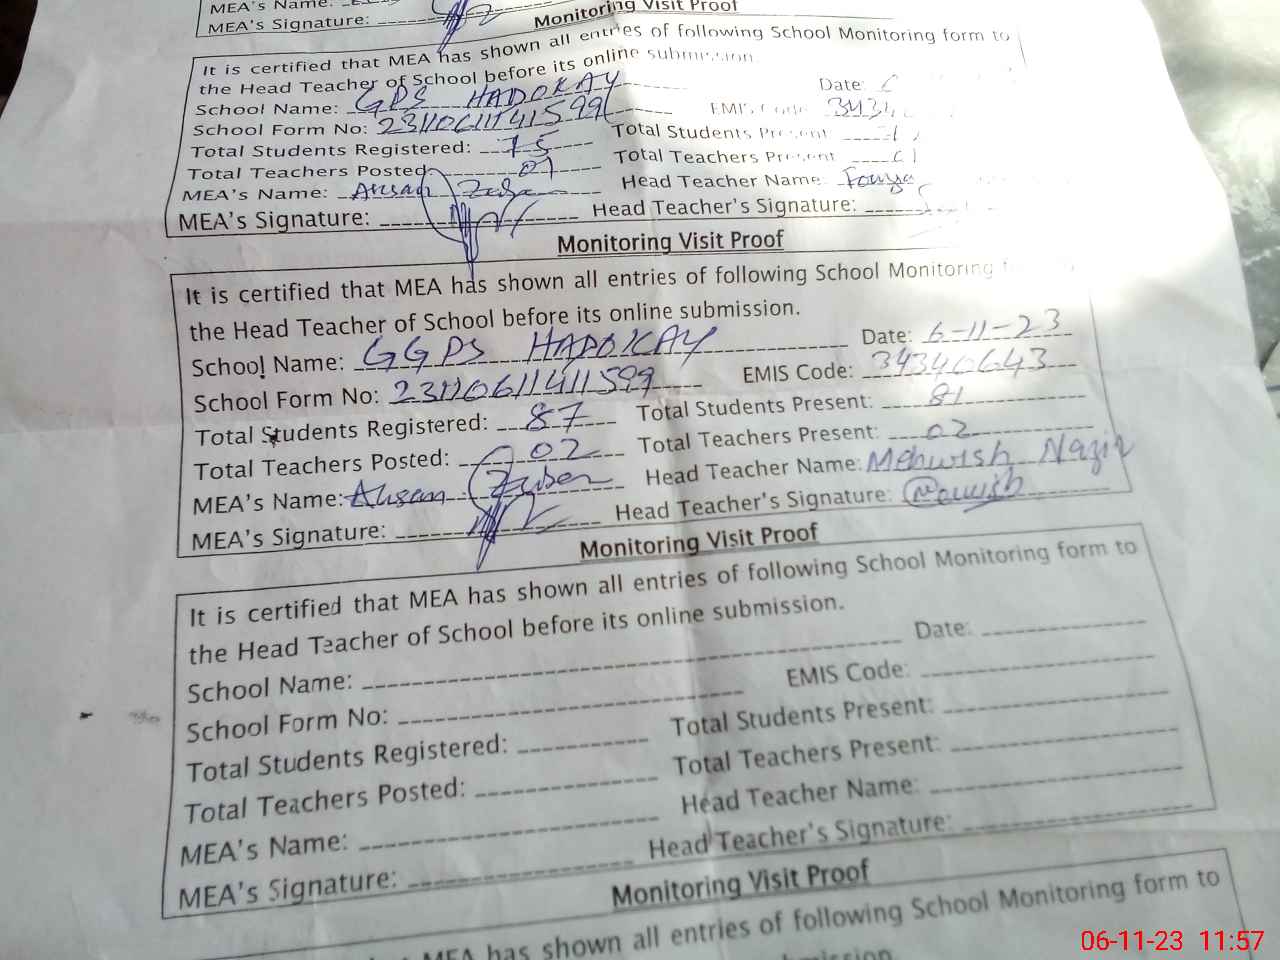 MEA's Name:
MEA's Signature:
Monitoring Visit Proof
It is certified that MEA has shown all entries of following School Monitoring form to
the Head Teacher of School before its online submission.
School Name: GPS HADOKAY Date:
School Form No: EMIS Code
Total Students Registered: 75 Total Students Present
Total Teachers Posted: 01 Total Teachers Present 01
MEA's Name: Ahsan Head Teacher Name:
MEA's Signature: Head Teacher's Signature:
Monitoring Visit Proof
It is certified that MEA has shown all entries of following School Monitoring
the Head Teacher of School before its online submission.
School Name: GGPS HADOKAY Date: 6-11-23
School Form No: 231106111411599 EMIS Code: 34340643
Total Students Registered: 87 Total Students Present: 81
Total Teachers Posted: 02 Total Teachers Present: 02
MEA's Name: Ahsan Head Teacher Name: Mehwish Nazir
MEA's Signature: Head Teacher's Signature: Mehwish
Monitoring Visit Proof
It is certified that MEA has shown all entries of following School Monitoring form to
the Head Teacher of School before its online submission.
School Name: Date:
School Form No: EMIS Code:
Total Students Registered: Total Students Present:
Total Teachers Posted: Total Teachers Present:
MEA's Name: Head Teacher Name:
MEA's Signature: Head Teacher's Signature:
Monitoring Visit Proof
MEA has shown all entries of following School Monitoring form to
06-11-23 11:57